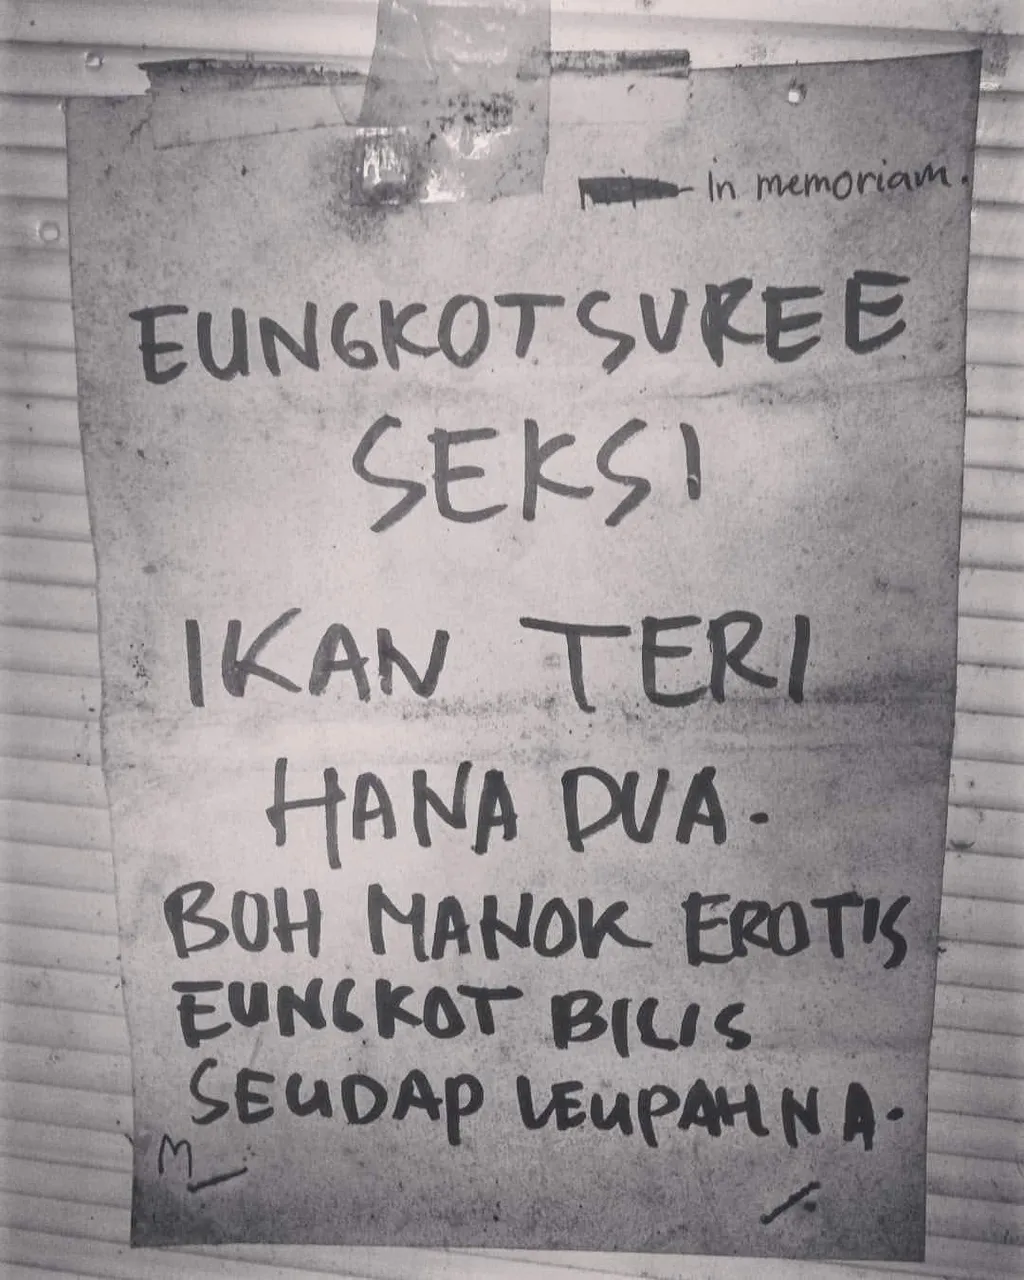 - In memoriam.
EUNGKOT SUREE
SEKSI
IKAN TERI
HANA DUA.
BOH MANOK EROTIS
EUNGKOT BILIS
SEUDAP LEUPAH NA.
M